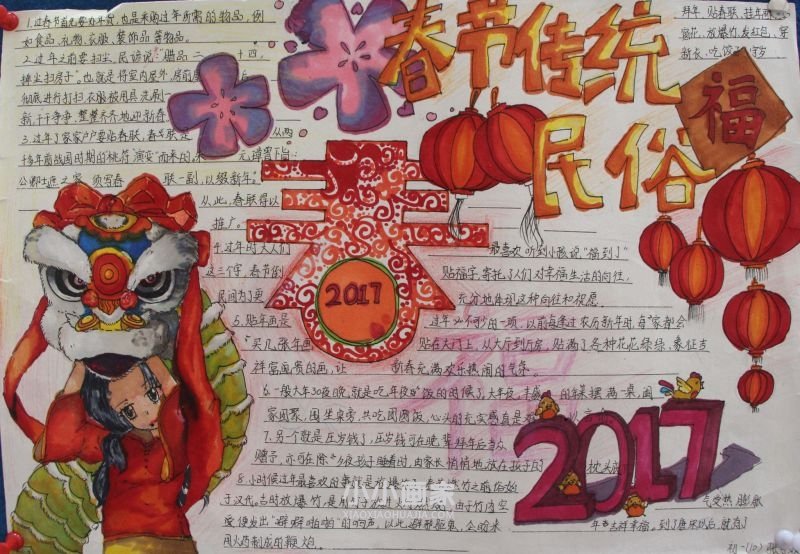 春节传统
民俗
福
春
2017
1.过春节首先要办年货,也是采购过年所需的物品,例
如食品、礼物、衣服、装饰品等物品。
2.过年之前要扫尘,民谚说"腊 二十四,
掸尘扫房子",也就是将室内屋外,房前
彻底进行打扫,衣服被用具洗刷
新,干干净净,整整齐齐地迎新春
3.过年了家家户户要贴春联,春联是 从两
千多年前战国时期的桃符演变而来的,
公卿士庶之家,须写春联一副,以缀新年。
从此,春联得以
推广。
4.过年时大人们 最喜欢听到小孩说"福到了"
这三个字,春节倒 贴福字,寄托了人们对幸福生活的向往,
民间为了更 充分地体现这种向往和祝愿
5.贴年画是 过年必不可少的一项,以前每逢过农历新年时,每家都会
买几张年画 贴在大门上,从大厅到厅房,贴满了各种花花绿绿、象征吉
祥富贵的画,让 新春充满欢乐热闹的气氛。
6.一般大年30夜晚,就是吃年夜饭的时候了,大年夜,丰盛的年菜摆满一桌,阖
家团聚,围坐桌旁,共吃团圆饭,心头的充实感真是
7.另一个就是压岁钱了,压岁钱可在晚辈拜年后当众
赐予,亦可在除夕夜孩子睡着时,由家长悄悄地放在孩子的 枕头底
8.小时候过年最喜欢的事就是放爆竹
于汉代。古时放爆竹,是 由于竹内空 气受热膨胀
爱便发出"噼噼啪啪"的响声,以此 避邪驱鬼,会盼来 年吉祥幸福。到了唐朝以后,就有了
用火药制成的鞭炮。
拜年、贴春联、挂年画、
窗花、放爆竹、发红包、穿
新衣、吃饺子、守岁
2017
小小画家
XIAOXIAOHUAJIA.COM
初一(10)